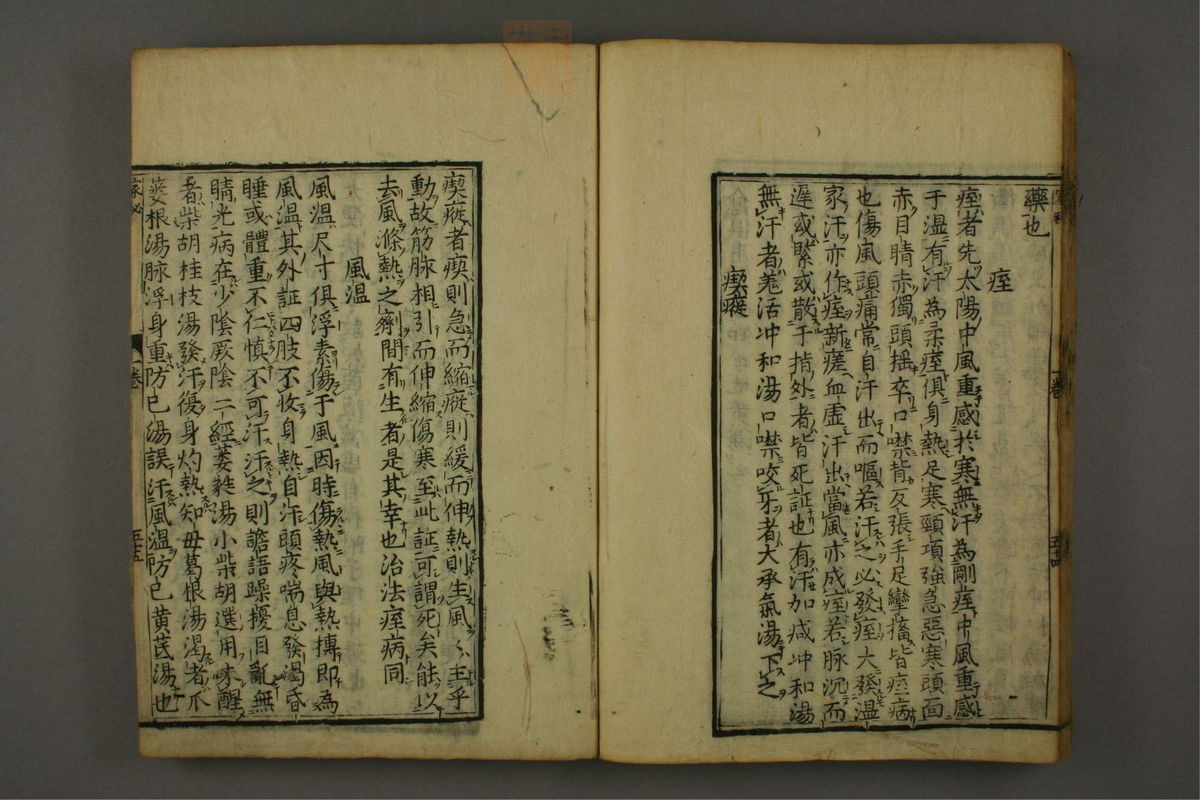 藥也
痓
痓者先太陽中風重感於寒無汗為剛痓中風重感
于温有汗為柔痓俱身熱足寒頸項強急惡寒頭面
赤目睛赤獨頭揺卒口噤背反張手足攣搐皆痓病
也傷風頭痛常自汗出而嘔若汗之必發痓大發温
家汗亦作痓新産血虚汗出當風亦成痓若脉沉而
遲或緊或散于指外者皆死証也有汗加减冲和湯
無汗者羗活冲和湯口噤咬牙者大承氣湯下之
瘈瘲
瘈瘲者瘈則急而縮瘲則緩而伸熱則生風〻主乎
動故筋脉相引而伸縮傷寒至此証可謂死矣能以
去風滌熱之劑間有生者是其幸也治法痓病同
風温
風温尺寸俱浮素傷于風因時傷熱風與熱搏即為
風温其外証四肢不收身熱自汗頭疼喘息發渴昏
睡或體重不仁慎不可汗汗之則譫語躁擾目亂無
睛光病在少陰厥陰二經葳蕤湯小柴胡選用未醒
者柴胡桂枝湯發汗復身灼熱知毋葛根湯渴者爪
蔞根湯脉浮身重防已湯誤汗風温防已黄芪湯也
一卷
五十五